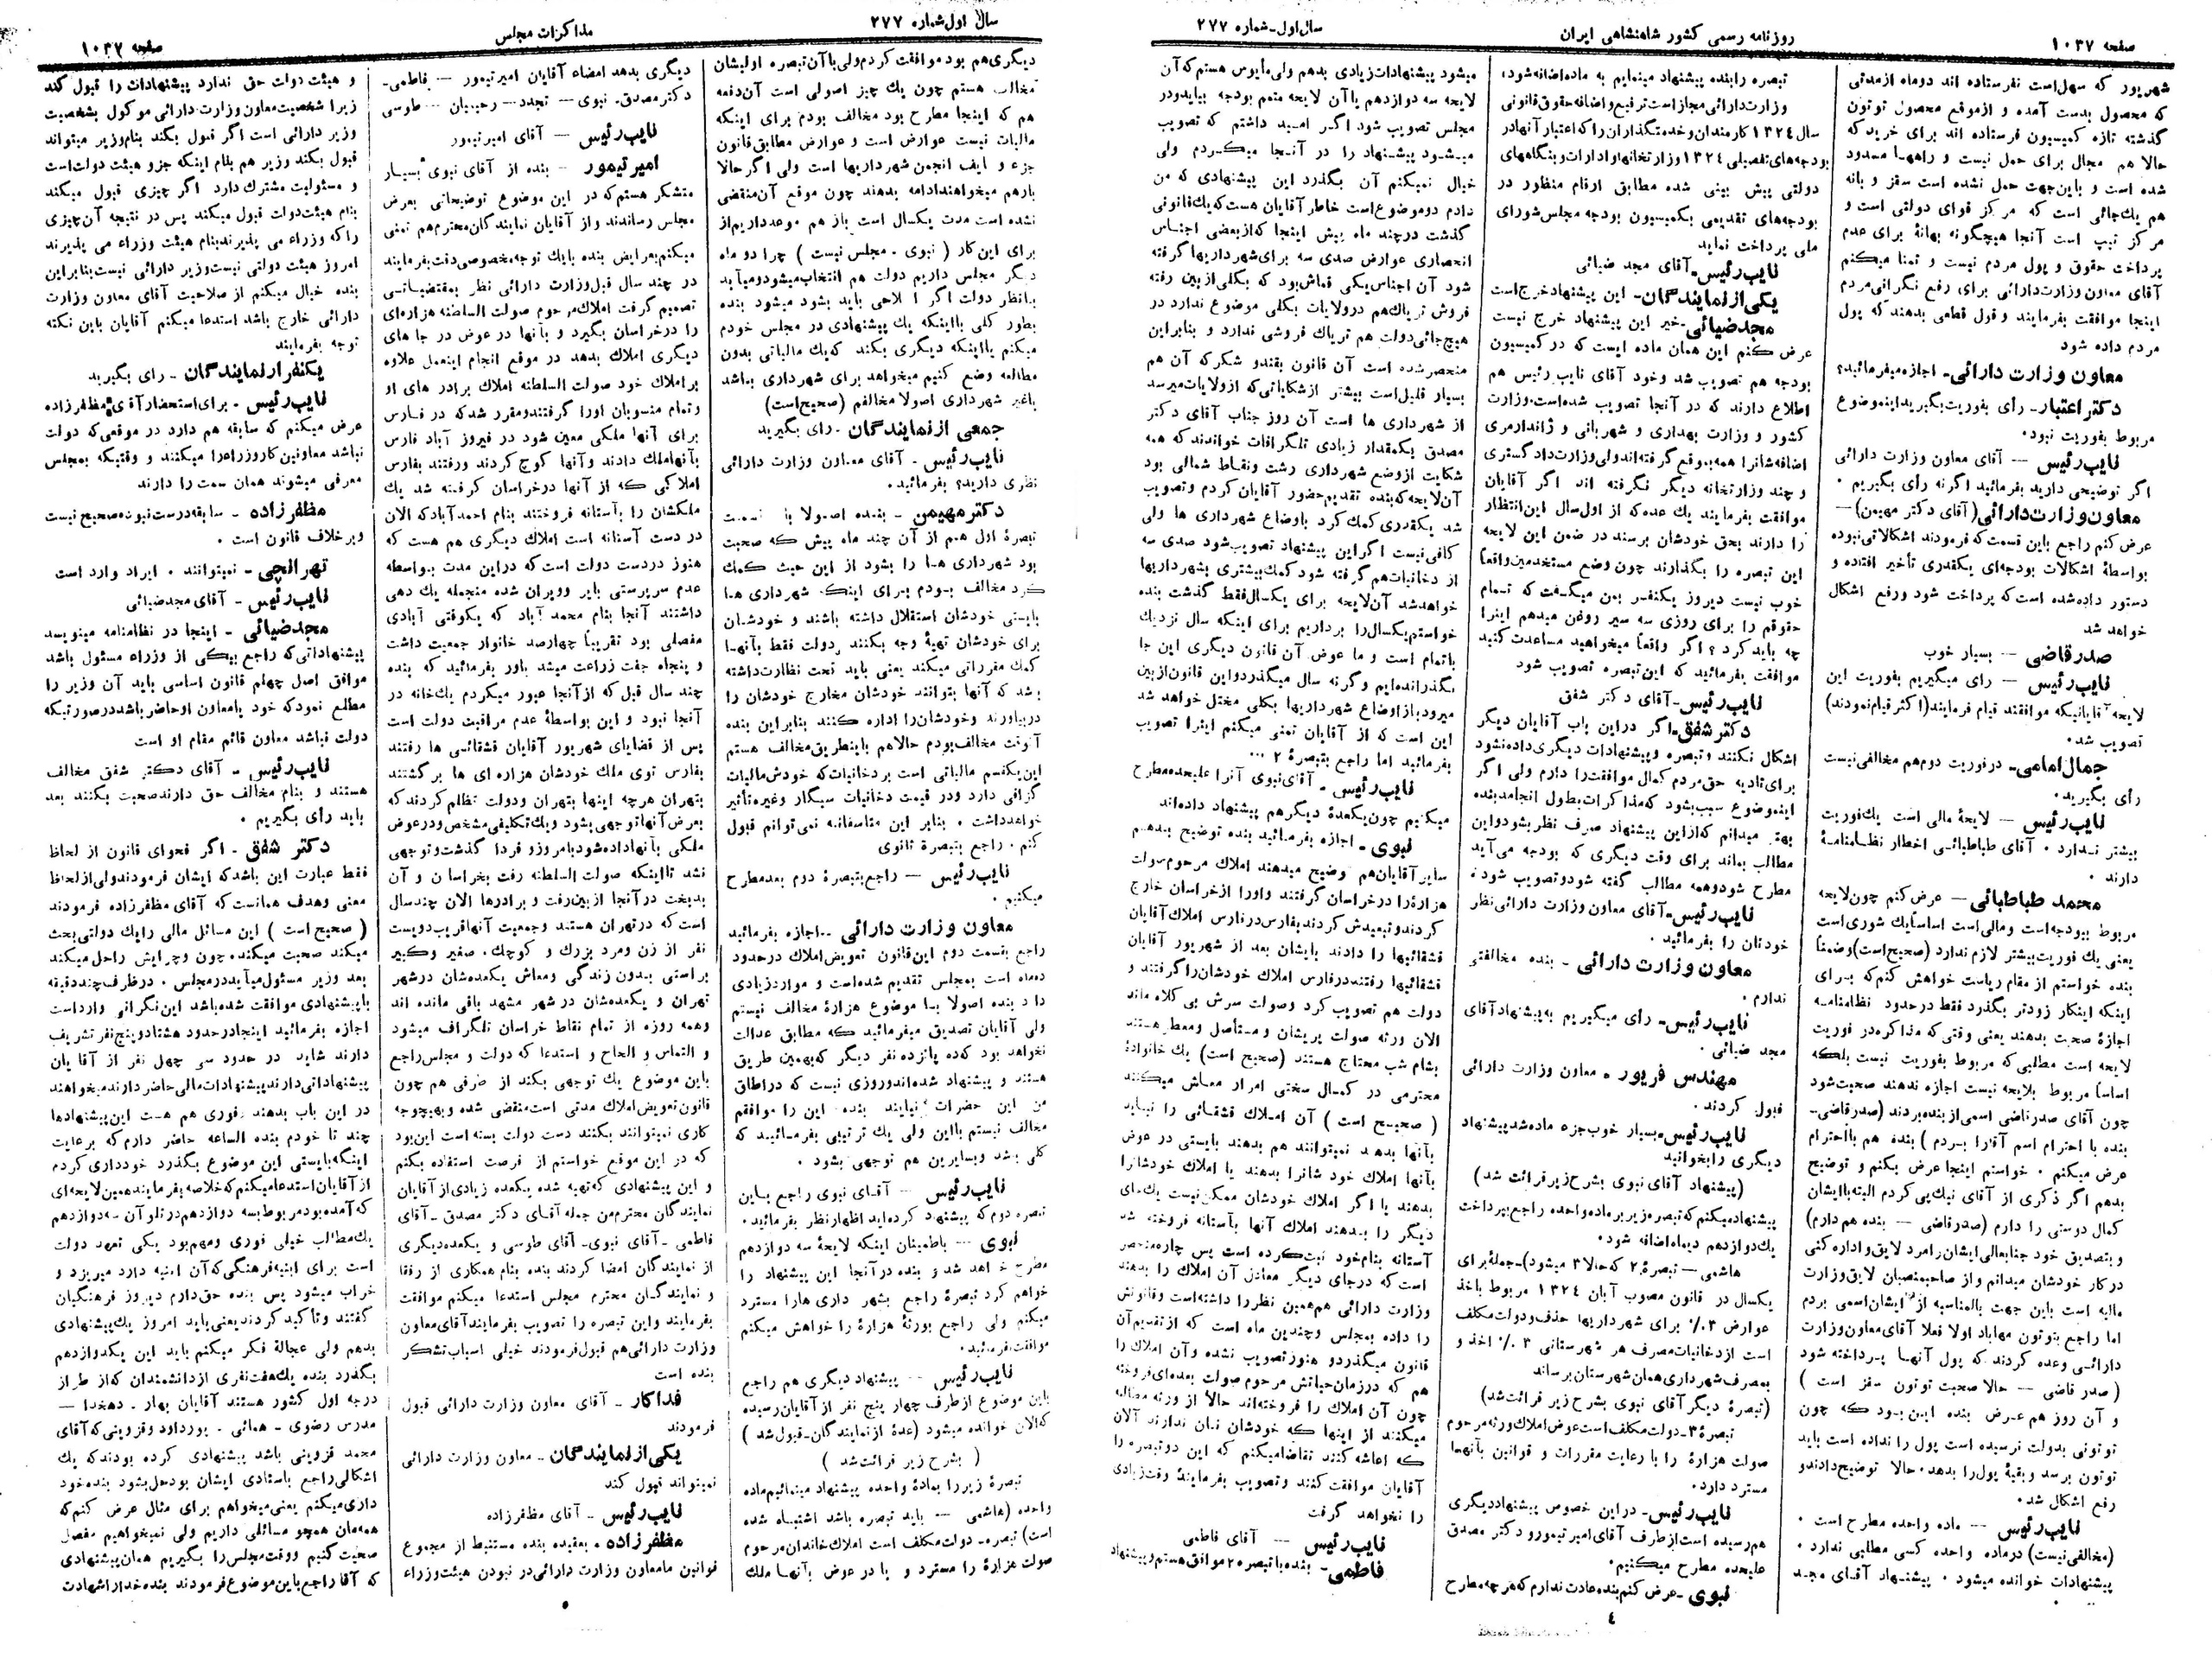 صفحه ۱۰۳۷
روزنامه رسمی کشور شاهنشاهی ایران
سال اول-شماره ۲۷۷
شهریور که سهل‌است نفرستاده اند دوماه ازمدتی
که محصول بدست آمده و ازموقع محصول توتون
گذشته تازه کمیسیون فرستاده اند برای خرید که
حالا هم مجال برای حمل نیست و راهها مسدود
شده است و باین‌جهت حمل نشده است سقز و بانه
هم یك‌جائی است که مرکز قوای دولتی است و
مرکز تیپ است آنجا هیچگونه بهانهٔ برای عدم
پرداخت حقوق و پول مردم نیست و تمنا میکنم
آقای معاون‌وزارت‌دارائی برای رفع نگرانی‌مردم
اینجا موافقت بفرمایند و قول قطعی بدهند که پول
مردم داده شود
معاون وزارت دارائی- اجازه میفرمائید؟
دکتر اعتبار- رأی بفوریت بگیرید اینموضوع
مربوط بفوریت نبود.
نایب‌رئیس — آقای معاون وزارت دارائی
اگر توضیحی دارید بفرمائید اگرنه رأی بگیریم .
معاون‌وزارت‌دارائی (آقای دکتر مهیمن) —
عرض‌کنم راجع باین قسمت‌که فرمودند اشکالاتی‌نبوده
بواسطهٔ اشکالات بودجه‌ای یکقدری تأخیر افتاده و
دستور داده‌شده است‌که پرداخت شود ورفع اشکال
خواهد شد
صدرقاضی — بسیار خوب
نایب‌رئیس — رای میگیریم بفوریت این
لایحه آقایانیکه موافقند قیام فرمایند(اکثر قیام‌نمودند)
تصویب شد.
جمال‌امامی- درفوریت دوم‌هم مخالفی‌نیست
رأی بگیرید.
نایب‌رئیس — لایحهٔ مالی است یك‌فوریت
بیشتر ندارد . آقای طباطبائی اخطار نظامنامهٔ
دارند .
محمد طباطبائی — عرض‌کنم چون‌لایحه
مربوط ببودجه‌است ومالی‌است اساساًیك شوری‌است
یعنی یك فوریت‌بیشتر لازم ندارد (صحیح‌است)وضمناً
بنده خواستم از مقام ریاست خواهش کنم‌که برای
اینکه اینکار زودتر بگذرد فقط درحدود نظامنامه
اجازهٔ صحبت بدهند یعنی وقتی‌که مذاکره‌در فوریت
لایحه است مطالبی‌که مربوط بفوریت نیست بلکه
اساساً مربوط بلایحه نیست اجازه ندهند صحبت‌شود
چون آقای صدرقاضی اسمی‌ازبنده‌بردند (صدرقاضی-
بنده با احترام اسم آقارا بردم ) بنده هم بااحترام
عرض میکنم . خواستم اینجا عرض بکنم و توضیح
بدهم اگر ذکری از آقای نیك‌پی کردم البته‌باایشان
کمال دوستی را دارم (صدرقاضی — بنده هم‌دارم)
و بتصدیق خود جنابعالی ایشان‌رامرد لایق‌واداره کنی
درکار خودشان میدانم واز صاحبمنصبان لایق‌وزارت
مالیه است باین جهت بالمناسبه از ایشان‌اسمی بردم
اما راجع بتوتون مهاباد اولا فعلا آقای‌معاون‌وزارت
دارائی وعده کردند که پول آنها پرداخته شود
( صدر قاضی — حالا صحبت توتون سقز است )
و آن روز هم عرض بنده این‌بود که چون
توتونی بدولت نرسیده است پول را نداده است باید
توتون برسد و بقیهٔ پول‌را بدهد. حالا توضیح‌دادندو
رفع اشکال شد.
نایب‌رئیس — ماده واحده مطرح است .
(مخالفی‌نیست) درماده واحده کسی مطلبی ندارد .
پیشنهادات خوانده میشود . پیشنهاد آقای مجد
تبصره رابنده پیشنهاد مینمایم به ماده‌اضافه‌شود:
وزارت‌دارائی مجازاست ترفیع واضافه حقوق‌قانونی
سال ۱۳۲۴ کارمندان وخدمتگذاران را که اعتبار آنهادر
بودجه‌های تفصیلی ۱۳۲۴ وزارتخانها و ادارات وبنگاههای
دولتی پیش بینی شده مطابق ارقام منظور در
بودجه‌های تقدیمی بکمیسیون بودجه مجلس‌شورای
ملی پرداخت نماید
نایب‌رئیس- آقای مجد ضیائی
یکی‌ازنمایندگان- این پیشنهاد خرج‌است
مجدضیائی- خیر این پیشنهاد خرج نیست
عرض کنم این همان ماده ایست که درکمیسیون
بودجه هم تصویب شد وخود آقای نایب رئیس هم
اطلاع دارند که در آنجا تصویب شده‌است.وزارت
کشور و وزارت بهداری و شهربانی و ژاندارمری
اضافه‌شانرا همه‌بموقع گرفته‌اند ولی وزارت‌دادگستری
و چند وزارتخانه دیگر نگرفته اند اگر آقایان
موافقت بفرمایند یك عده‌که از اول‌سال این‌انتظار
را دارند بحق خودشان برسند در ضمن این لایحه
این تبصره را بگذارند چون وضع مستخدمین‌واقعاً
خوب نیست دیروز یکنفر بمن میگفت که تمام
حقوقم را برای روزی سه سیر روغن میدهم اینرا
چه باید کرد ؟ اگر واقعاً میخواهید مساعدت کنید
موافقت بفرمائید که این‌تبصره تصویب شود
نایب‌رئیس- آقای دکتر شفق
دکترشفق-اگر دراین باب آقایان دیگر
اشکال نکنند و تبصره وپیشنهادات دیگری‌داده‌نشود
برای‌تادیه حق‌مردم کمال موافقت‌را دارم ولی اگر
اینموضوع سبب‌بشود که‌مذاکرات‌بطول انجامدبنده
بهتر میدانم که‌ازاین پیشنهاد صرف نظربشودواین
مطالب بماند برای وقت دیگری که بودجه می‌آید
مطرح شودوهمه مطالب گفته شودوتصویب شود:
نایب‌رئیس-آقای معاون وزارت دارائی‌نظر
خودتان را بفرمائید .
معاون وزارت دارائی - بنده مخالفتی
ندارم .
نایب‌رئیس- رأی میگیریم به‌پیشنهادآقای
مجد ضیائی .
مهندس فریور - معاون وزارت دارائی
قبول کردند .
نایب‌رئیس-بسیار خوب‌جزء ماده‌شدپیشنهاد
دیگری رابخوانید
(پیشنهاد آقای نبوی بشرح‌زیرقرائت شد)
پیشنهادمیکنم که‌تبصره‌زیربرماده‌واحده راجع‌بپرداخت
یك‌دوازدهم دیماه‌اضافه شود.
هاشمی — تبصره ۲ که‌حالا ۳ میشود)- جملهٔ برای
یکسال در قانون مصوب آبان ۱۳۲۴ مربوط باخذ
عوارض ۳٪ برای شهرداریها حذف‌ودولت‌مکلف
است ازدخانیات‌مصرف هر شهرستانی ۳٪ اخذ و
بمصرف‌شهرداری‌همان‌شهرستان‌برساند
(تبصرهٔ دیگر آقای نبوی بشرح زیر قرائت‌شد)
تبصرهٔ۳-دولت‌مکلف‌است‌عوض‌املاك‌ورثه‌مرحوم
صولت هزارهٔ را با رعایت مقررات و قوانین بآنهما
مسترد دارد.
نایب‌رئیس- دراین خصوص پیشنهاددیگری
هم‌رسیده است‌ازطرف آقای‌امیرتیمورو دکتر مصدق
علیحده مطرح میکنیم.
نبوی -عرض کنم‌بنده‌عادت ندارم که‌هرچه‌مطرح
میشود پیشنهادات‌زیادی بدهم ولی‌مأیوس هستم‌که‌آن
لایحه سه دوازدهم یاآن لایحه متمم بودجه بیایددر
مجلس تصویب شود اگر امید داشتم که تصویب
میشود پیشنهاد را در آنجا میکردم ولی
خیال نمیکنم آن بگذرد این پیشنهادی که من
دادم دوموضوع‌است خاطر آقایان هست‌که‌یك‌قانونی
گذشت درچند ماه پیش اینجا که‌ازبعضی اجناس
انحصاری عوارض صدی سه برای‌شهرداریهاگرفته
شود آن اجناس‌یکی قماش‌بود که بکلی‌ازبین رفته
فروش تریاك‌هم درولایات بکلی موضوع ندارد در
هیچ‌جائی‌دولت هم تریاك فروشی ندارد و بنابراین
منحصرشده است آن قانون بقندو شکرکه آن هم
بسیار قلیل‌است بیشتر ازشکایاتی‌که ازولایات‌میرسد
از شهرداری ها است آن روز جناب آقای دکتر
مصدق یکمقدار زیادی تلگرافات خواندند که همه
شکایت ازوضع شهرداری رشت ونقاط شمالی بود
آن‌لایحه‌که‌بنده تقدیم‌حضور آقایان کردم وتصویب
شد یکقدری‌کمك کرد باوضاع شهرداری ها ولی
کافی‌نیست اگراین پیشنهاد تصویب‌شود صدی سه
از دخانیات‌هم گرفته شود کمك‌بیشتری بشهرداریها
خواهدشد آن‌لایحه برای یکسال‌فقط گذشت بنده
خواستم‌یکسال‌را برداریم برای اینکه سال نزدیك
باتمام است و ما عوض آن قانون دیگری این جا
نگذرانده‌ایم وگرنه سال میگذردواین قانون‌ازبین
میرودبازاوضاع شهرداریها بکلی مختل خواهد شد
این است که از آقایان تمنی میکنم اینرا تصویب
بفرمائید اما راجع بتبصرهٔ ۲ ...
نایب‌رئیس - آقای‌نبوی آنرا علیحده‌مطرح
میکنیم چون‌یکعدهٔ دیگرهم پیشنهاد داده‌اند
نبوی - اجازه بفرمائید بنده توضیح بدهم
سایرآقایان‌هم توضیح میدهند املاك مرحوم‌صولت
هزارهٔ‌را درخراسان گرفتند واورا ازخراسان خارج
کردندوتبعیدش کردندبفارس‌درفارس املاك‌آقایان
قشقائیها را دادند بایشان بعد از شهریور آقایان
قشقائیها رفتنددرفارس املاك خودشان‌راگرفتند و
دولت هم تصویب کرد وصولت سرش بی کلاه ماند
الان ورثه صولت پریشان ومستأصل ومعطل‌هستند
بشام شب محتاج هستند (صحیح است) یك خانوادهٔ
محترمی در کمال سختی امرار معاش میکنند
( صحیح است ) آن املاك قشقائی را نباید
بآنها بدهد نمیتوانند هم بدهند بایستی در عوض
بآنها املاك خود شانرا بدهند یا املاك خودشانرا
بدهند یا اگر املاك خودشان ممکن‌نیست یك‌جای
دیگر را بدهند املاك آنها بآستانه فروخته شد
آستانه بنام‌خود ثبت‌کرده است پس چاره‌منحصر
است که درجای دیگر معادل آن املاك را بدهند
وزارت دارائی هم‌همین نظررا داشته‌است وقانونش
را داده بمجلس وچندین ماه است که ازتقدیم‌آن
قانون میگذردو هنوزتصویب نشده وآن املاك را
هم که درزمان‌حیاتش مرحوم صولت بعده‌ای‌فروخته
چون آن املاك را فروخته‌اند حالا از ورثه مطالبه
میکنند از اینها که خودشان نان ندارند الان
که اعاشه کنند تقاضامیکنم که این دوتبصره را
آقایان موافقت کنند وتصویب بفرمایند وقت‌زیادی
را نخواهد گرفت
نایب‌رئیس — آقای فاطمی
فاطمی- بنده باتبصره ۲ موافق هستم‌وپیشنهاد
٤
سال اول شماره ۲۷۷
مذاکرات مجلس
صفحه ۱۰۳۷
دیگری‌هم بود موافقت کردم‌ولی‌باآن‌تبصره اولیشان
مخالف هستم چون یك چیز اصولی است آن‌دفعه
هم که اینجا مطرح بود مخالف بودم برای اینکه
مالیات نیست عوارض است و عوارض مطابق‌قانون
جزء وظایف انجمن شهرداریها است ولی اگر حالا
بازهم میخواهندادامه بدهند چون موقع آن‌منقضی
نشده است مدت یکسال است بازهم موعدداریم‌از
برای این‌کار ( نبوی - مجلس نیست ) چرا دو ماه
دیگر مجلس داریم دولت هم انتخاب‌میشودو میآید
بنظر دولت اگر اصلاحی باید بشود میشود بنده
بطور کلی بااینکه یك پیشنهادی در مجلس خودم
میکنم یااینکه دیگری بکند که‌یك مالیاتی بدون
مطالعه وضع کنیم میخواهد برای شهرداری باشد
یاغیر شهرداری اصولا مخالفم (صحیح‌است)
جمعی ازنمایندگان -رای بگیرید
نایب‌رئیس - آقای معاون وزارت دارائی
نظری دارید؟ بفرمائید.
دکترمهیمن - بنده اصولا با قسمت
تبصرهٔ اول هم از آن چند ماه پیش که صحبت
بود شهرداری ها را بشود از این حیث کمك
کرد مخالف بودم برای اینکه شهرداری ها
بایستی خودشان استقلال داشته باشند و خودشان
برای خودشان تهیهٔ وجه بکنند ودولت فقط بآنها
کمك مقرراتی میکند یعنی باید تحت نظارت‌داشته
باشد که آنها بتوانند خودشان مخارج خودشان را
دربیاورند وخودشان‌را اداره کنند بنابراین بنده
آنوقت مخالف‌بودم حالاهم باینطریق‌مخالف هستم
این‌یکقسم مالیاتی است بردخانیات‌که خودش‌مالیات
گزافی دارد ودر قیمت دخانیات سیگار وغیره‌تأثیر
خواهدداشت . بنابر این متاسفانه نمی‌توانم قبول
کنم. راجع بتبصرهٔ ثانوی
نایب‌رئیس — راجع‌بتبصرهٔ دوم بعدمطرح
میکنیم .
معاون وزارت دارائی --اجازه بفرمائید
راجع بقسمت دوم این‌قانون تعویض‌املاك درحدود
ده‌ماه است بمجلس تقدیم شده‌است و مواردزیادی
دارد بنده اصولا با موضوع هزارهٔ مخالف نیستم
ولی آقایان تصدیق میفرمائید که مطابق عدالت
نخواهد بود که‌ده پانزده نفر دیگر که‌بهمین طریق
هستند و پیشنهاد شده‌اندوروزی نیست که دراطاق
من این حضرات نیایند بنده این را موافقم
مخالف نیستم بااین ولی یك ترتیبی بفرمائید که
کلی باشد وبسایرین هم توجهی بشود .
نایب‌رئیس — آقای نبوی راجع باین
تبصره دوم‌که پیشنهاد کرده‌اید اظهارنظر بفرمائید.
نبوی — باطمینان اینکه لایحهٔ سه دوازدهم
مطرح خواهد شد و بنده درآنجا این پیشنهاد را
خواهم کرد تبصرهٔ راجع بشهر داری هارا مسترد
میکنم ولی راجع بورثهٔ هزارهٔ را خواهش میکنم
موافقت‌بفرمائید.
نایب‌رئیس — پیشنهاد دیگری هم راجع
باین موضوع ازطرف چهار پنج نفر ازآقایان‌رسیده
که‌الان خوانده میشود (عدهٔ ازنمایندگان-قبول‌شد )
( بشرح زیر قرائت‌شد )
تبصرهٔ زیررا بمادهٔ واحده پیشنهاد مینمائیم‌ماده
واحده (هاشمی — باید تبصره باشد اشتباه شده
است) تبصره- دولت‌مکلف است املاك‌خاندان‌مرحوم
صولت هزارهٔ را مسترد و یا در عوض بآنها ملك
دیگری بدهد امضاء آقایان امیرتیمور — فاطمی-
دکترمصدق- نبوی — تجدد — رحیمیان — طوسی
نایب‌رئیس — آقای امیرتیمور
امیرتیمور — بنده از آقای نبوی بسیار
متشکر هستم‌که در این موضوع توضیحاتی بعرض
مجلس رساندند واز آقایان نمایندگان‌محترم‌هم تمنی
میکنم‌بعرایض بنده بایك توجه‌مخصوصی دقت‌بفرمایند
در چند سال قبل‌وزارت دارائی نظر بمقتضیاتی
تصمیم گرفت املاك‌مرحوم صولت السلطنه هزاره‌ای
را درخراسان بگیرد و بآنها در عوض در جا های
دیگری املاك بدهد در موقع انجام اینعمل علاوه
براملاك خود صولت السلطنه املاك برادر های او
وتمام منسوبان اورا گرفتندومقرر شدکه در فارس
برای آنها ملکی معین شود در فیروز آباد فارس
بآنهاملك دادند وآنها کوچ کردند ورفتند بفارس
املاکی که از آنها درخراسان گرفته شد یك
ملکشان را بآستانه فروختند بنام احمدآبادکه الان
در دست آستانه است املاك دیگری هم هست که
هنوز دردست دولت است که دراین مدت بواسطه
عدم سرپرستی بایر وویران شده منجمله یك دهی
داشتند آنجا بنام محمد آباد که یکوقتی آبادی
مفصلی بود تقریباً چهارصد خانوار جمعیت داشت
و پنجاه جفت زراعت میشد باور بفرمائید که بنده
چند سال قبل که ازآنجا عبور میکردم یك‌خانه در
آنجا نبود و این بواسطهٔ عدم مراقبت دولت است
پس از قضایای شهریور آقایان قشقائی ها رفتند
بفارس توی ملك خودشان هزاره ای ها برگشتند
بتهران هرچه اینها بتهران ودولت تظلم کردند که
بعرض آنهاتوجهی بشود ویك‌تکلیفی مشخص‌ودرعوض
ملکی بآنهاداده‌شودبامروزو فردا گذشت‌وتوجهی
نشد تااینکه صولت السلطنه رفت بخراسان و آن
بدبخت درآنجا ازبین‌رفت و برادرها الان چندسال
است که درتهران هستند وجمعیت آنهاقریب‌دویست
نفر از زن ومرد بزرك و کوچك. صغیر وکبیر
براستی بدون زندگی ومعاش یکعده‌شان درشهر
تهران و یکعده‌شان در شهر مشهد باقی مانده اند
وهمه روزه از تمام نقاط خراسان تلگراف میشود
و التماس و الحاح و استدعا که دولت و مجلس‌راجع
باین موضوع یك توجهی بکند از طرفی هم چون
قانون‌تعویض‌املاك مدتی است‌منقضی شده وبهیچوجه
کاری نمیتوانند بکنند دست دولت بسته است این‌بود
که در این موقع خواستم از فرصت استفاده بکنم
و این پیشنهادی که‌تهیه شده یکعده زیادی‌ازآقایان
نمایندگان محترم‌من جمله آقای دکتر مصدق-آقای
فاطمی -آقای نبوی- آقای طوسی و یکعده‌دیگری
از نمایندگان امضا کردند بنده بنام همکاری از رفقا
و نمایندگان محترم مجلس استدعا میکنم موافقت
بفرمایند واین تبصره را تصویب بفرمایندآقای‌معاون
وزارت دارائی‌هم قبول‌فرمودند خیلی اسباب‌تشکر
بنده است
فداکار - آقای معاون وزارت دارائی قبول
فرمودند
یکی ازنمایندگان - معاون وزارت دارائی
نمیتواند قبول کند
نایب‌رئیس - آقای مظفرزاده
مظفرزاده - بعقیده بنده مستنبط از مجموع
قوانین مامعاون وزارت دارائی‌در نبودن هیئت‌وزراء
و هیئت دولت حق ندارد پیشنهادات را قبول کند
زیرا شخصیت‌معاون وزارت‌دارائی موکول بشخصیت
وزیر دارائی است اگر قبول بکند بنام‌وزیر میتواند
قبول بکند وزیر هم بنام اینکه جزو هیئت دولت‌است
و مسئولیت مشترك دارد اگر چیزی قبول میکند
بنام هیئت‌دولت قبول میکند پس در نتیجه آن‌چیزی
راکه وزراء می پذیرندبنام هیئت وزراء می پذیرند
امروز هیئت دولتی نیست‌وزیر دارائی نیست‌بنابراین
بنده خیال میکنم از صلاحیت آقای معاون وزارت
دارائی خارج باشد استدعا میکنم آقایان باین نکته
توجه بفرمایند
یکنفرازنمایندگان - رای بگیرید
نایب‌رئیس - برای‌استحضارآقای‌مظفرزاده
عرض میکنم که سابقه هم دارد در موقعی‌که دولت
نباشد معاونین‌کاروزراءرا میکنند و وقتیکه بمجلس
معرفی میشوند همان سمت را دارند
مظفرزاده - سابقه‌درست‌نبوده‌صحیح‌نیست
وبرخلاف قانون است .
تهرانچی - نمیتوانند . ایراد وارد است
نایب‌رئیس - آقای مجدضیائی
مجدضیائی - اینجا در نظامنامه مینویسد
پیشنهاداتی‌که راجع بیکی از وزراء مسئول باشد
موافق اصل چهلم قانون اساسی باید آن وزیر را
مطلع نمودکه خود یامعاون اوحاضر باشددرصورتیکه
دولت نباشد معاون قائم مقام او است
نایب‌رئیس - آقای دکتر شفق مخالف
هستند و بنام مخالف حق دارندصحبت بکنند بعد
باید رأی بگیریم .
دکتر شفق - اگر فحوای قانون از لحاظ
فقط عبارت این باشدکه ایشان فرمودندولی‌ازلحاظ
معنی وهدف همانست که آقای مظفرزاده فرمودند
( صحیح است ) این مسائل مالی رایك دولتی‌بحث
میکند صحبت میکند. چون وچرایش راحل‌میکند
بعد وزیر مسئول‌میآیددرمجلس . درظرف‌چنددقیقه
باپیشنهادی موافقت شده‌باشد این‌نگرانی واردست
اجازه بفرمائید اینجادرحدود هشتادوپنج‌نفر تشریف
دارند شاید در حدود سی چهل نفر از آقایان
پیشنهاداتی‌دارند پیشنهادات‌مالی‌حاضر دارندمیخواهند
در این باب بدهند. فوری هم هست این‌پیشنهادها
چند تا خودم بنده الساعه حاضر دارم که برعایت
اینکه‌بایستی این موضوع بگذرد خودداری کردم
ازآقایان‌استدعامیکنم‌که‌خلاصه بفرمایندهمین‌لایحه‌ای
که‌آمده‌بودمربوط بسه دوازدهم‌درتلوآن سه‌دوازدهم
یك‌مطالب خیلی فوری ومهم‌بود یکی تعهد دولت
است برای ابنیه‌فرهنگی‌که‌آن ابنیه دارد میریزد و
خراب میشود پس بنده حق‌دارم دیروز فرهنگیان
گفتند وتأکید کردندیعنی‌باید امروز یك‌پیشنهادی
بدهم ولی عجالة فکر میکنم باید این یکدوازدهم
بگذرد بنده یك‌هفت‌نفری ازدانشمندان که‌از طراز
درجه اول کشور هستند آقایان بهار . دهخدا —
مدرس رضوی — همائی . پورداود وقزوینی‌که‌آقای
محمد قزوینی باشد پیشنهادی کرده بودندکه یك
اشکالی‌راجع باستادی ایشان بودحل‌بشود بنده‌خود
داری‌میکنم یعنی‌میخواهم برای مثال عرض کنم‌که
همه‌مان همچو مسائلی داریم ولی نمیخواهیم مفصل
صحبت کنیم ووقت‌مجلس‌را بگیریم همان‌پیشنهادی
که آقاراجع‌باین‌موضوع‌فرمودند بنده‌خداراشهادت
۰